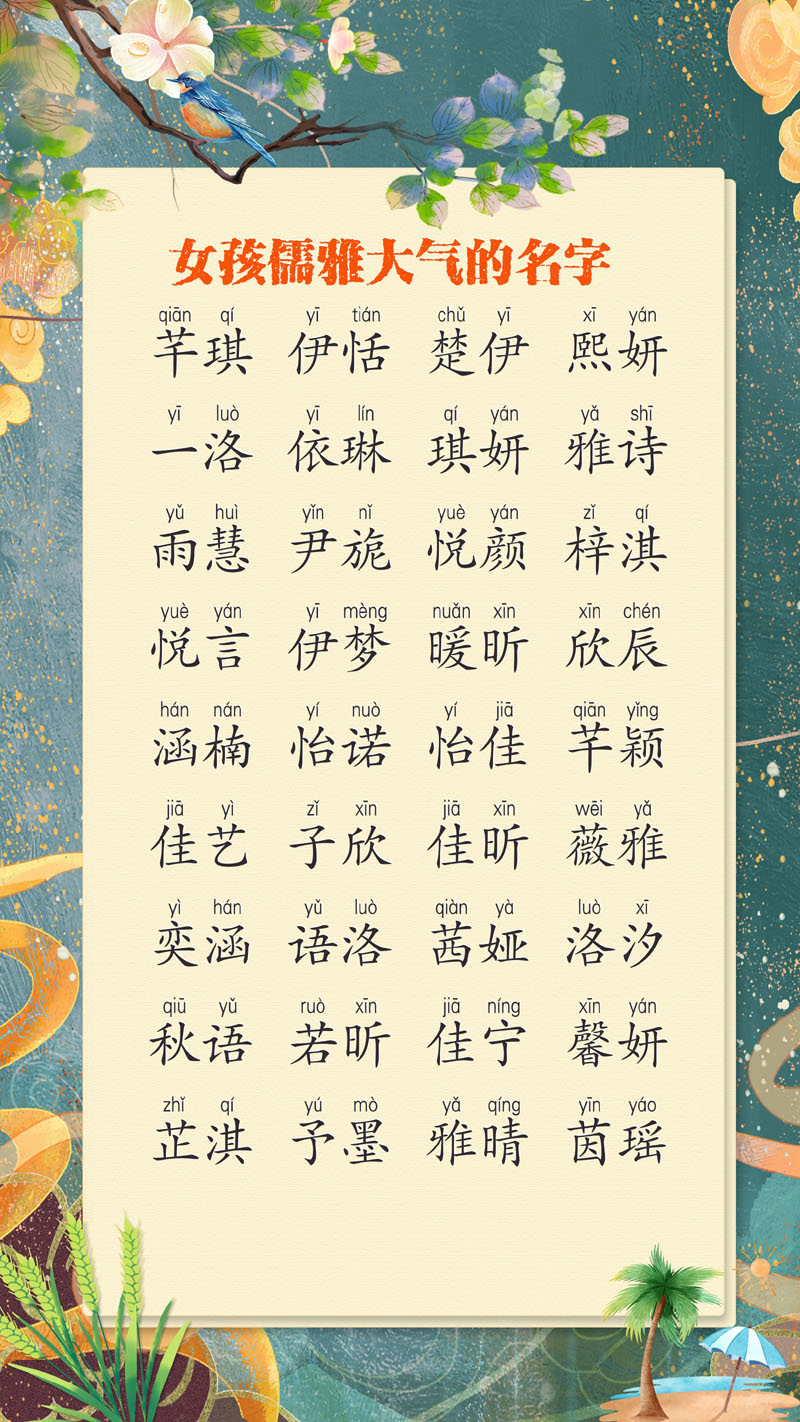 女孩儒雅大气的名字
qiān qí yī tián chǔ yī xī yán
芊琪 伊恬 楚伊 熙妍
yī luò yī lín qí yán yǎ shī
一洛 依琳 琪妍 雅诗
yǔ huì yǐn nǐ yuè yán zǐ qí
雨慧 尹旎 悦颜 梓淇
yuè yán yī mèng nuǎn xīn xīn chén
悦言 伊梦 暖昕 欣辰
hán nán yí nuò yí jiā qiān yǐng
涵楠 怡诺 怡佳 芊颖
jiā yì zǐ xīn jiā xīn wēi yǎ
佳艺 子欣 佳昕 薇雅
yì hán yǔ luò qiàn yà luò xī
奕涵 语洛 茜娅 洛汐
qiū yǔ ruò xīn jiā níng xīn yán
秋语 若昕 佳宁 馨妍
zhǐ qí yú mò yǎ qíng yīn yáo
芷淇 予墨 雅晴 茵瑶